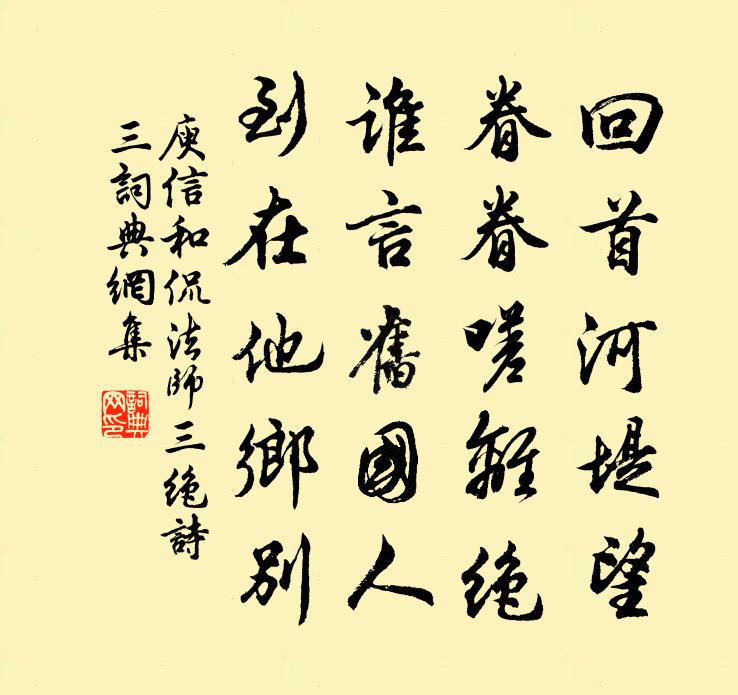 回首河堤望
眷眷嗟離絶
誰言舊國人
到在他鄉別
庾信和侃法師三絶詩
三詞典網集
詞典
网印